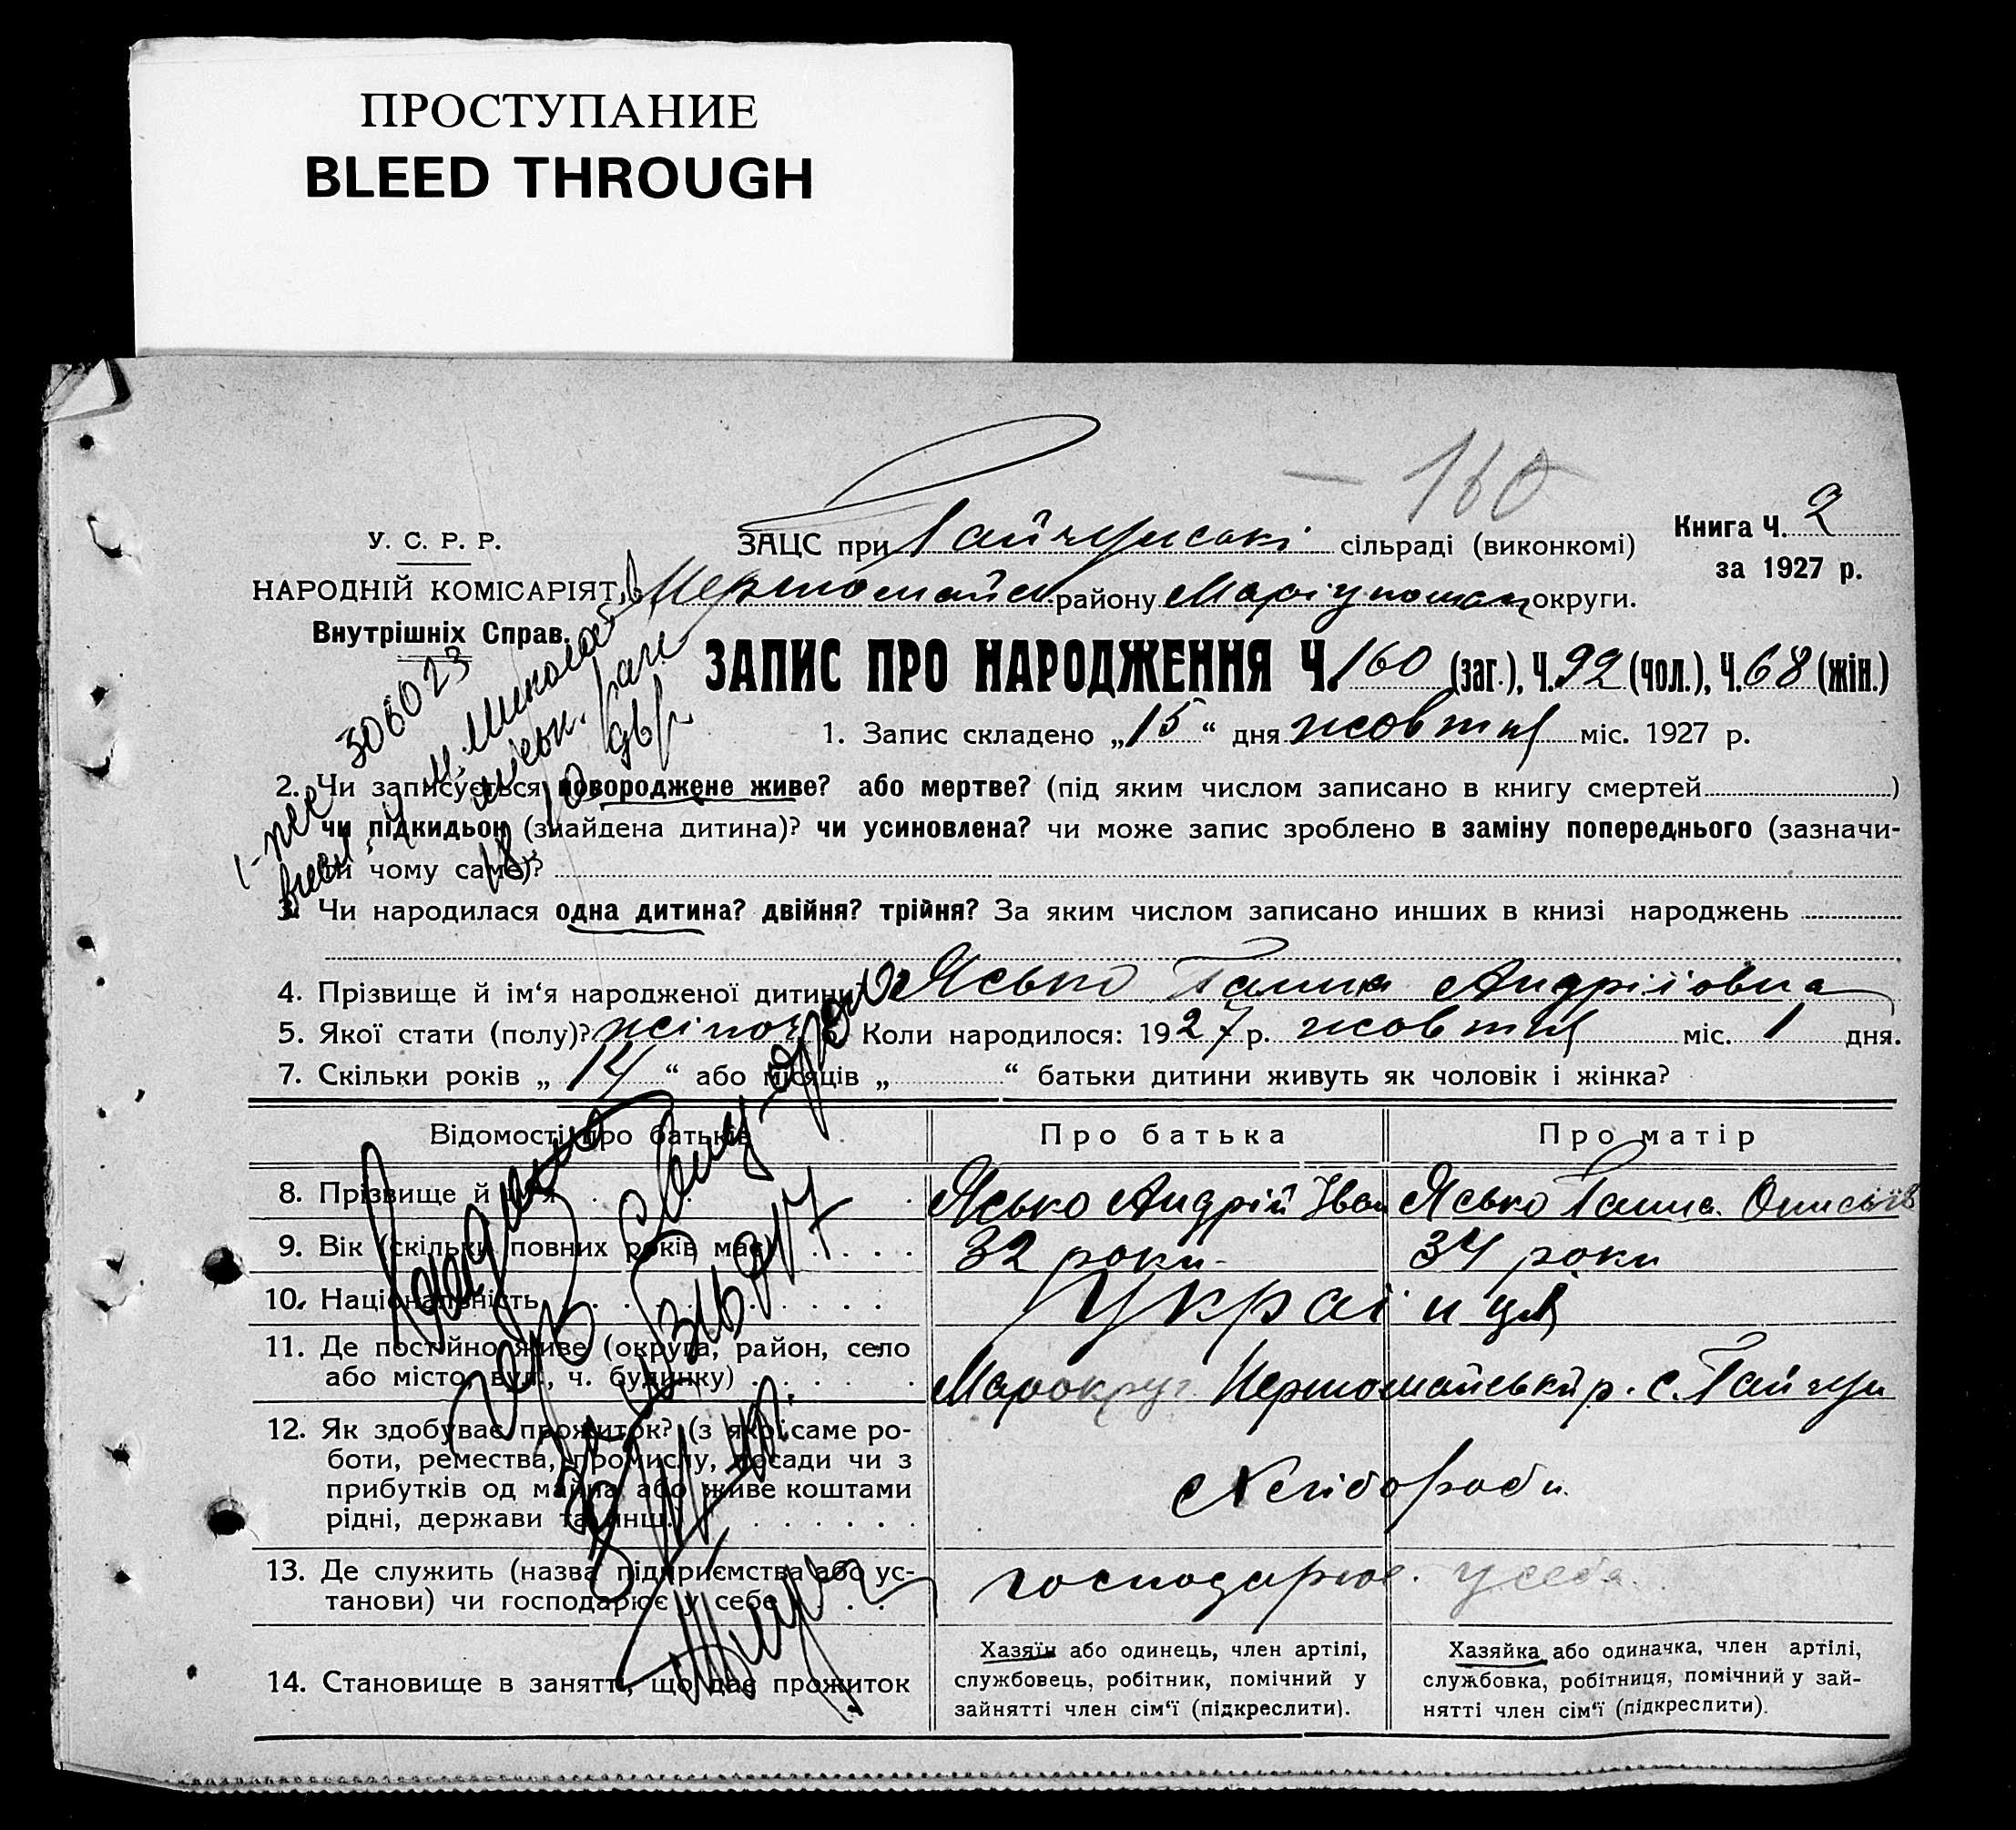 ПРОСТУПАНИЕ
BLEED THROUGH
— 160
У. С. Р. Р.
НАРОДНІЙ КОМІСАРІЯТ
Внутрішніх Справ.
ЗАЦС при Гайчурські сільраді (виконкомі)
Первомайск. району Маріупольск округи.
Книга Ч. 2
за 1927 р.
ЗАПИС ПРО НАРОДЖЕННЯ Ч. 160 (заг.), Ч. 92 (чол.), Ч. 68 (жін.)
1. Запис складено „15“ дня жовтня міс. 1927 р.
2. Чи записується новороджене живе? або мертве? (під яким числом записано в книгу смертей )
чи підкидьок (знайдена дитина)? чи усиновлена? чи може запис зроблено в заміну попереднього (зазначи-
ти чому саме)?
3. Чи народилася одна дитина? двійня? трійня? За яким числом записано инших в книзі народжень
4. Прізвище й ім‘я народженої дитини Ясько Галина Андріївна
5. Якої стати (полу)? жіноч Коли народилося: 1927 р. жовтня міс. 1 дня.
7. Скільки років „14“ або місяців „ “ батьки дитини живуть як чоловік і жінка?
Відомості про батьків Про батька Про матір
8. Прізвище й ім‘я Ясько Андрій Іван Ясько Ганна Онисьїв
9. Вік (скільки повних років має) 32 роки 34 роки
10. Національність Українця
11. Де постійно живе (округа, район, село
або місто, вул., ч. будинку) Марокруг Первомайський р. с. Гайчур
12. Як здобуває прожиток? (з якої саме ро-
боти, ремества, промислу, посади чи з
прибутків од майна або живе коштами
рідні, держави та инш.) Хлібороби
13. Де служить (назва підприємства або ус-
танови) чи господарює у себе господарює у себе
14. Становище в занятті, що дає прожиток
Хазяїн або одинець, член артілі,
службовець, робітник, помічний у
зайнятті член сім‘ї (підкреслити).
Хазяйка або одиначка, член артілі,
службовка, робітниця, помічний у зай-
нятті член сім‘ї (підкреслити).
306023